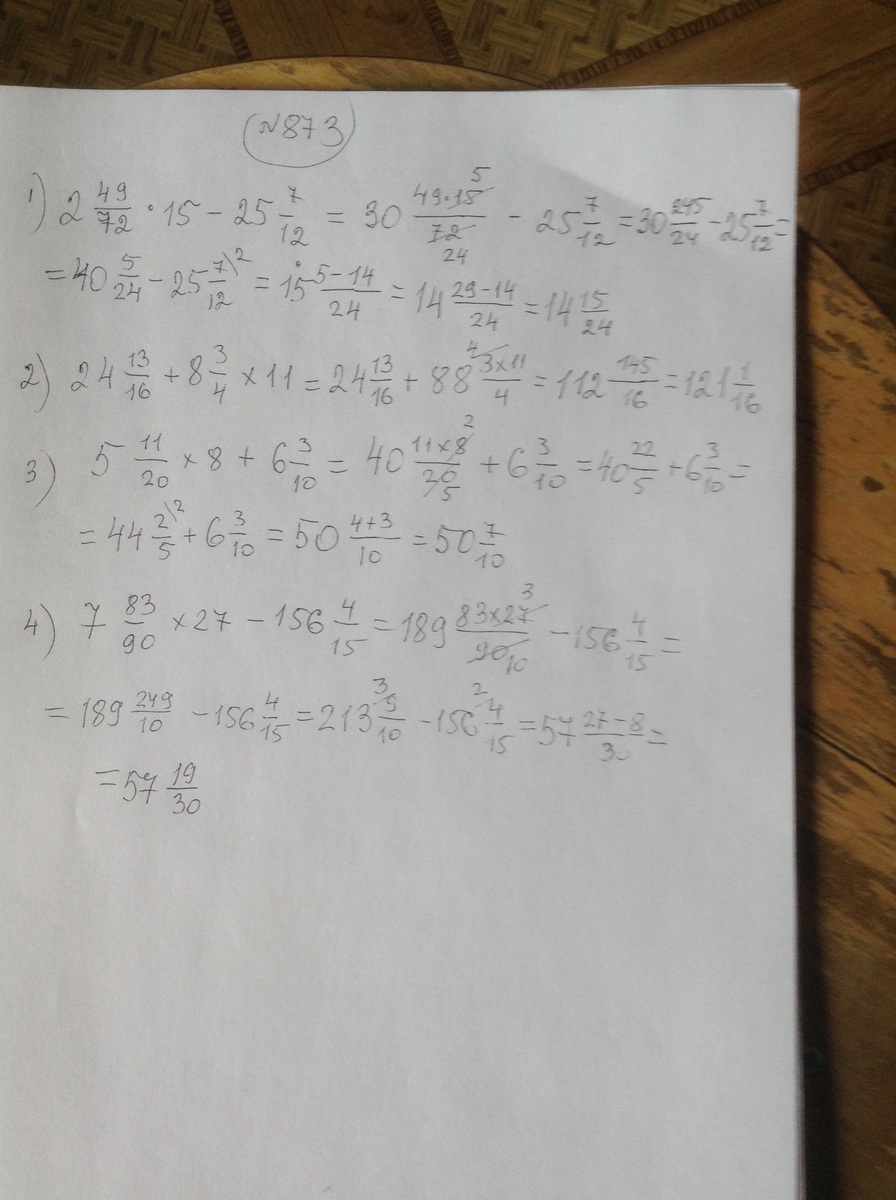 №873
1) 2 49/72 · 15 − 25 7/12 = 30 49·15/72 5 24 − 25 7/12 = 30 245/24 − 25 7/12 =
= 40 5/24 − 25 7\2/12 = 15 5−14/24 = 14 29−14/24 = 14 15/24
2) 24 13/16 + 8 3/4 × 11 = 24 13/16 + 88 4 3×11/4 = 112 145/16 = 121 1/16
3) 5 11/20 × 8 + 6 3/10 = 40 11×8/20 2 5 + 6 3/10 = 40 22/5 + 6 3/10 =
= 44 2\2/5 + 6 3/10 = 50 4+3/10 = 50 7/10
4) 7 83/90 × 27 − 156 4/15 = 189 83×27/90 3 10 − 156 4/15 =
= 189 249/10 − 156 4/15 = 213 3 9/10 − 156 2 4/15 = 57 27−8/30 =
= 57 19/30